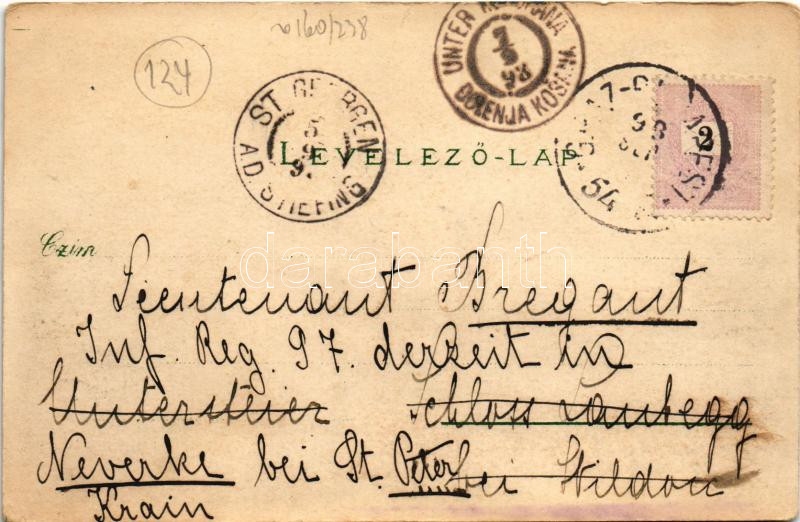 v160/238
124
UNTER KOSCHANA
7/9
98
DOLENJA KOŠANA
ST. GEORGEN
5
9
AD. STIEFING
98
54
2
LEVELEZŐ-LAP
Czim
darabanth
Lieutenant Bregant
Inf. Reg. 97. derzeit in
Untersteier Schloss Laubegg
Neverke bei St. Peter bei Wildon
Krain